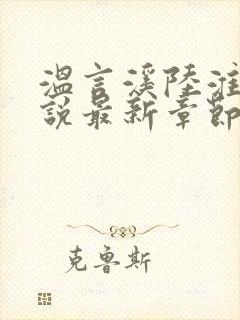 温言溪陸淮
説最新章節
克魯斯